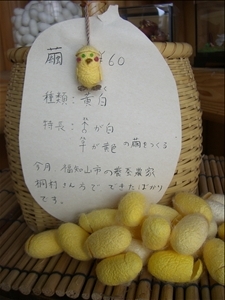 繭 ¥60
種類：黄白
特長：が白
が黄色の繭をつくる
今月 福知山市の養蚕農家
桐村さんちで できたばかり
です。